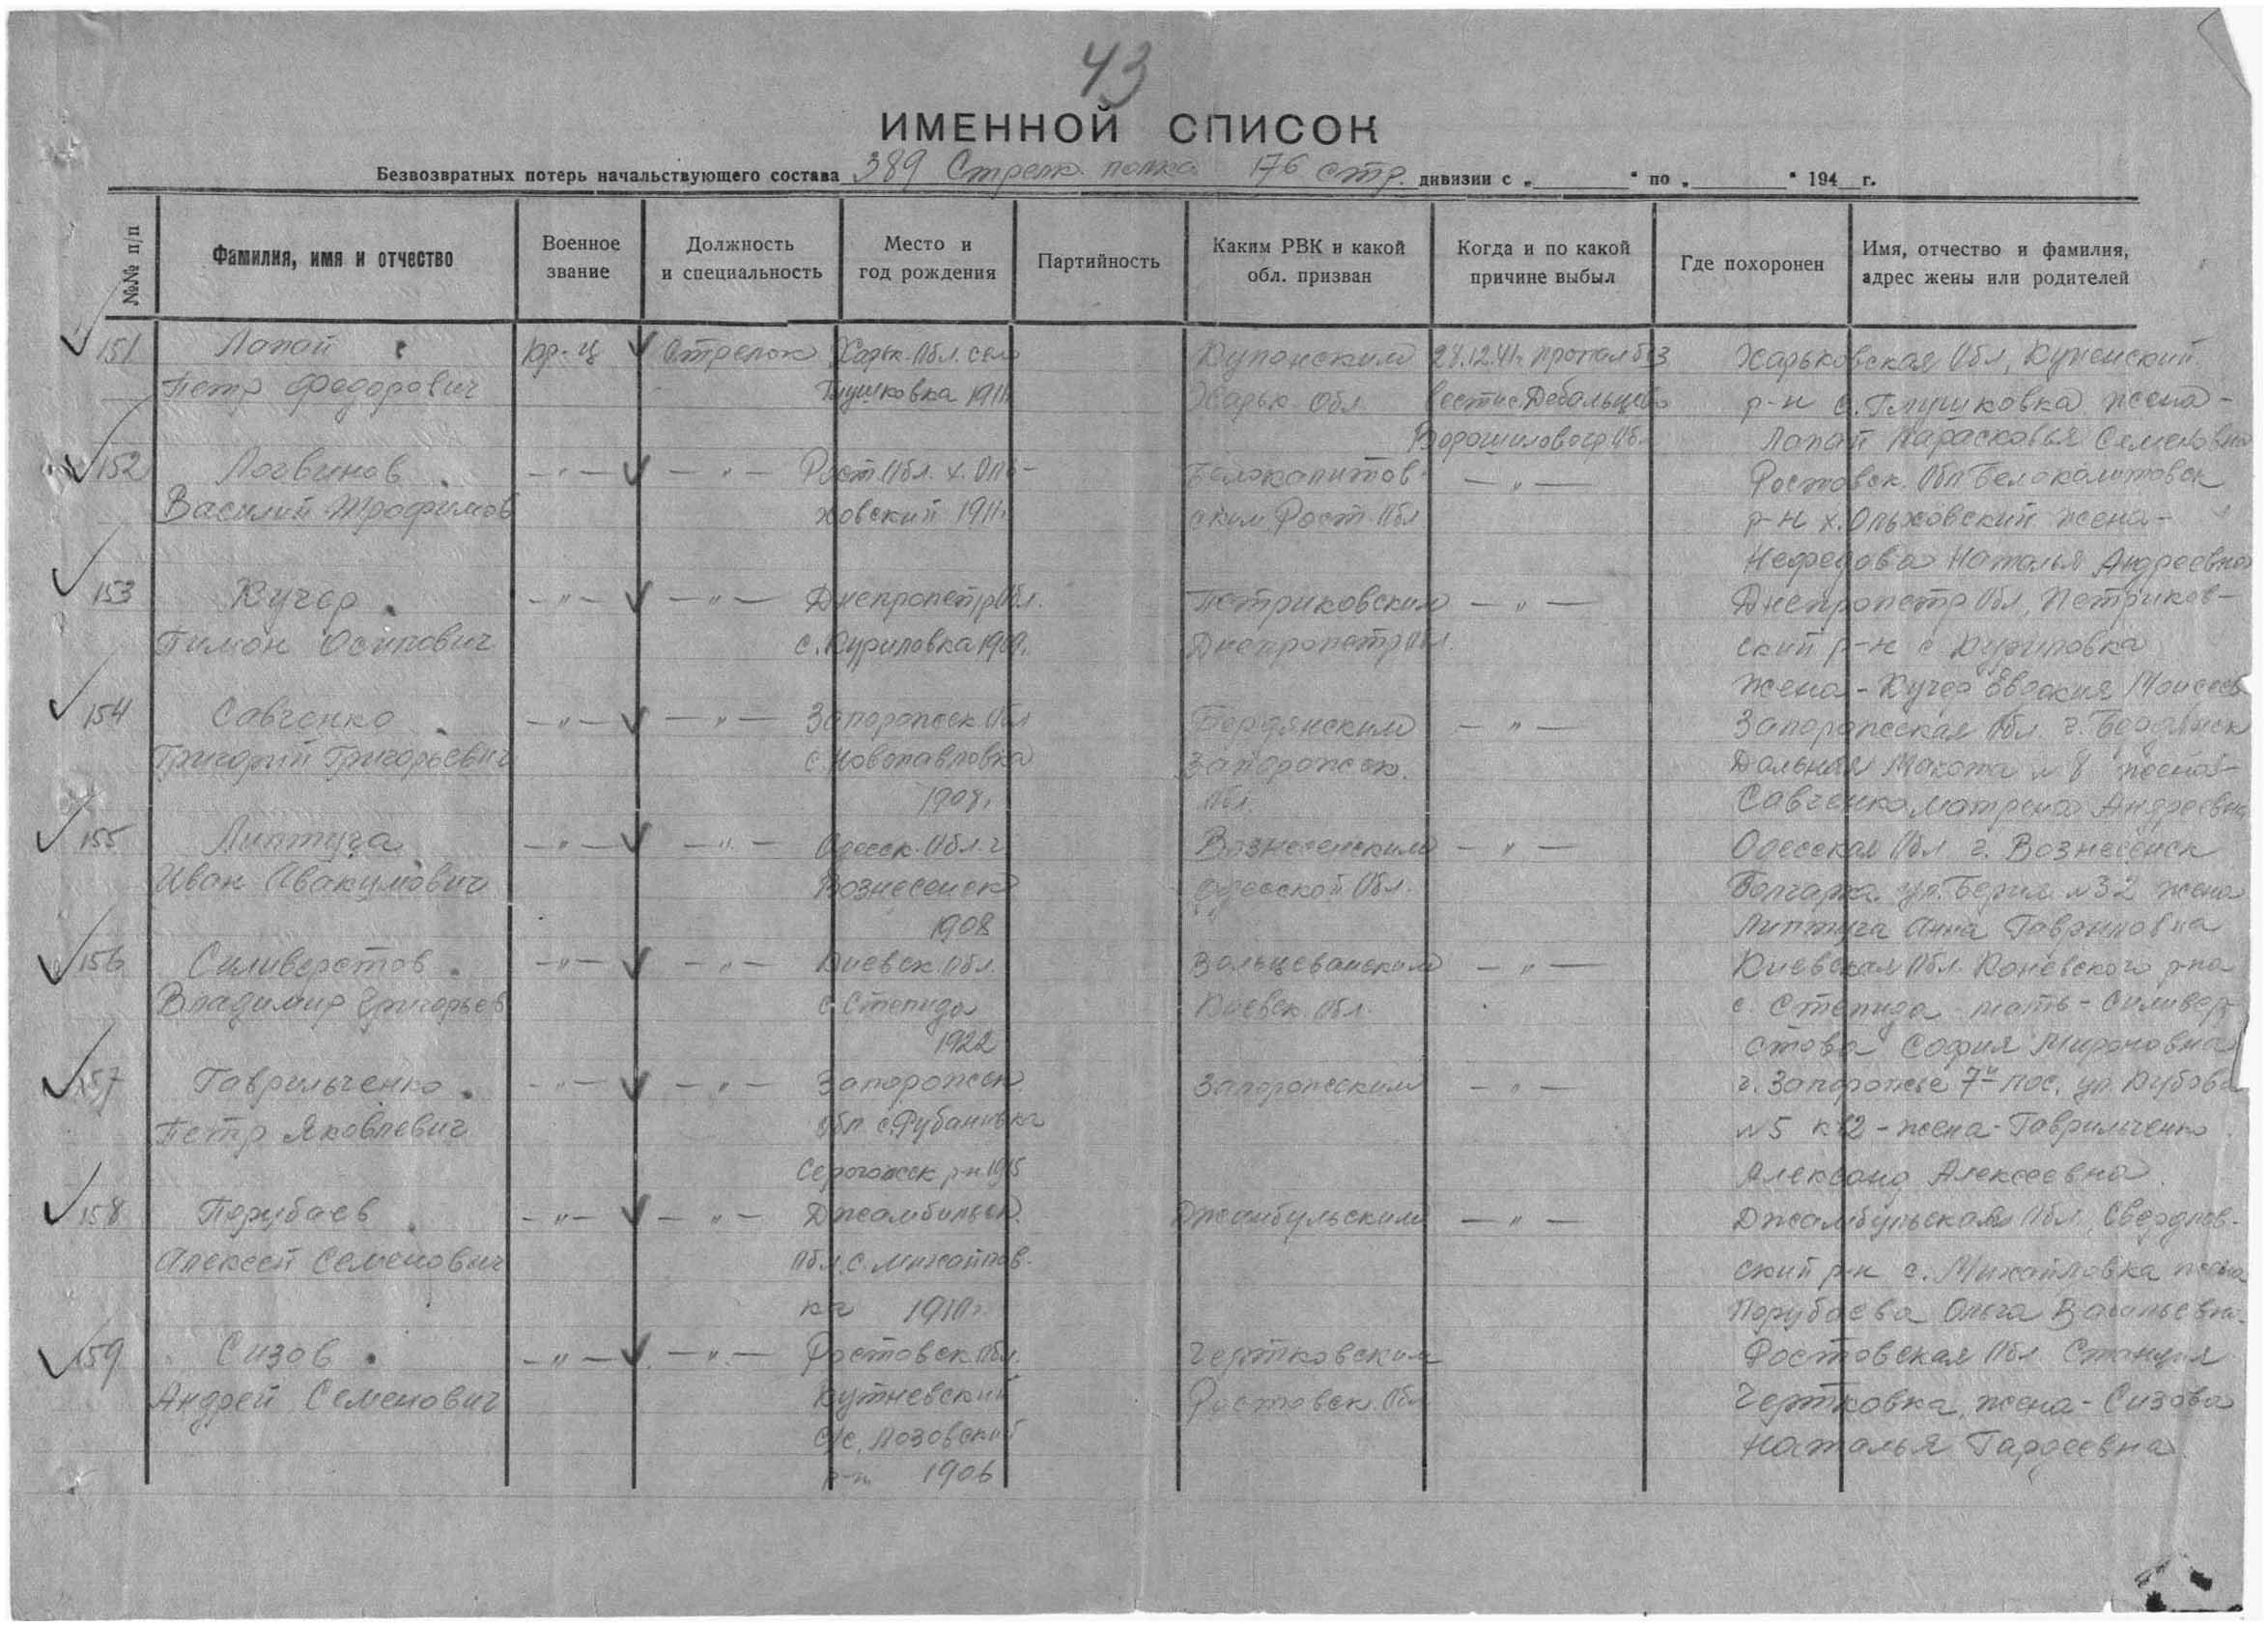 43
ИМЕННОЙ СПИСОК
Безвозвратных потерь начальствующего состава 389 Стрелк. полка 176 стр. дивизии с „ " по „ " 194 г.
№№ п/п
Фамилия, имя и отчество
Военное звание
Должность и специальность
Место и год рождения
Партийность
Каким РВК и какой обл. призван
Когда и по какой причине выбыл
Где похоронен
Имя, отчество и фамилия, адрес жены или родителей
151 Лопай кр-ц Стрелок Харьк. Обл. село Купянским 28.12.41г. пропал без Харьковская Обл, Купенский
Петр Федорович Глушковка 1911 Харьк. Обл. вести с. Дебальцево р-н с. Глушковка жена-
Ворошиловогр. Об. Лопай Парасковья Семеновна
152 Логвинов -"- -"- Рост. Обл. х. Оль- Белокалитов- -"- Ростовск. Обл Белокалитовск
Василий Трофимов ховский 1911г. ским Рост. Обл р-н х. Ольховский жена-
Нефедова Наталья Андреевна
153 Кучер -"- -"- Днепропетр Обл. Петриковским -"- Днепропетр Обл, Петриков-
Тимон Осипович с. Куриловка 1909. Днепропетр Обл. ский р-н с Куриловка
жена-Кучер Евдокия Моисеев
154 Савченко -"- -"- Запорожск Обл Бердянским -"- Запорожская Обл. г. Бердянск
Григорий Григорьевич с. Новопавловка Запорожск. Дальная Макорта №8 жена-
1908. Обл. Савченко Матрена Андреевна
155 Липтуга -"- -"- Одесск. Обл. г Вознесенским -"- Одесская Обл г. Вознесенск
Иван Авакумович Вознесенск Одесской Обл. Болгарка ул. Берия №32 жена
1908 Липтуга Анна Гавриловна
156 Силиверстов -"- -"- Киевск. Обл. -"- Киевская Обл. Каневского р-на
Владимир Григорьев с. Степида Киевск Обл. с. Степида мать-Силивер-
1922 стова София Мироновна
157 Гаврильченко -"- -"- Запорожск. Запорожским -"- г. Запорожье 7й пос. ул. Дубова
Петр Яковлевич обл с. Рубановка №5 к 12-жена-Гаврильченко
Серогожск р-н 1915 Александ Алексеевна
158 Порубаев -"- -"- Джамбульск. Джамбульским -"- Джамбульская Обл, Свердлов-
Алексей Семенович Обл. с. Михайлов- ский р-н с. Михайловка жена
ка 1910г. Порубаева Ольга Васильевна.
159 Сизов -"- -"- Ростовск. Обл. Чертковским Ростовская Обл Станция
Андрей Семенович Кутневский Ростовск. Обл Чертковка, жена-Сизова
с/с, Лозовский Наталья
р-н 1906